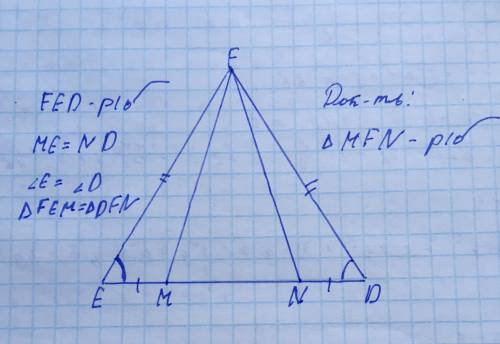 F
FED - р/б
ME = ND
∠E = ∠D
△FEM = △DFN
Док-ть:
△MFN - р/б
E M N D